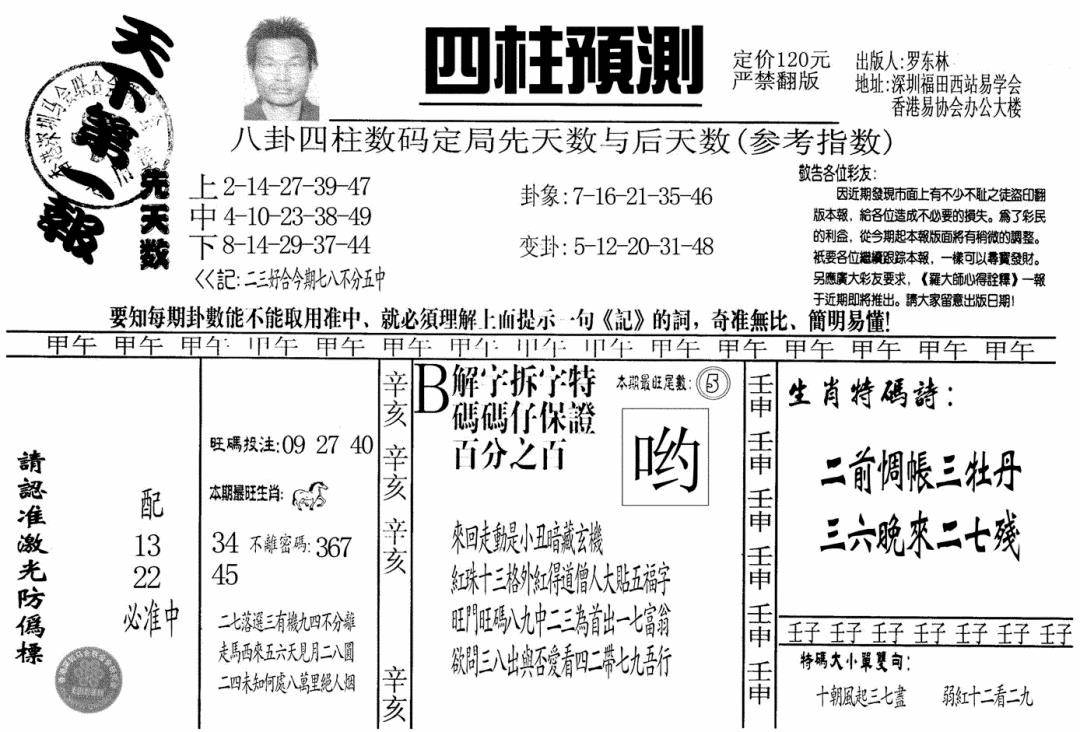 天下第一報
先天数
四柱預測
定价120元
严禁翻版
出版人:罗东林
地址:深圳福田西站易学会
香港易协会办公大楼
八卦四柱数码定局先天数与后天数(参考指数)
上2-14-27-39-47
中4-10-23-38-49
下8-14-29-37-44
<<記:二三好合今期七八不分五中
卦象:7-16-21-35-46
变卦:5-12-20-31-48
敬告各位彩友:
因近期發現市面上有不少不耻之徒盗印翻
版本報,給各位造成不必要的損失。爲了彩民
的利益,從今期起本報版面將有稍微的調整。
衹要各位繼續跟踪本報,一樣可以尋寶發財。
另應廣大彩友要求,《羅大師心得詮釋》一報
于近期即將推出。請大家留意出版日期!
要知每期卦數能不能取用准中、就必須理解上面提示一句《記》的詞,奇准無比、簡明易懂!
甲午 甲午 甲午 甲午 甲午 甲午 甲午 甲午 甲午 甲午 甲午 甲午 甲午 甲午 甲午
請認准激光防僞標
配
13
22
必准中
旺碼投注:09 27 40
本期最旺生肖:
34 不離密碼:367
45
二七落選三有機九四不分離
走馬西來五六天見月二八圓
二四未知何處八萬里絕人烟
辛亥 辛亥 辛亥 辛亥
B解字拆字特
碼碼仔保證
百分之百
本期最旺尾數:5
哟
來回走動是小丑暗藏玄機
紅珠十三格外紅得道僧人大貼五福字
旺門旺碼八九中二三為首出一七富翁
欲問三八出與否愛看四二帶七九吾行
壬申 壬申 壬申 壬申 壬申 壬申
生肖特碼詩:
二前惆帳三牡丹
三六晚來二七殘
壬子 壬子 壬子 壬子 壬子 壬子 壬子
特碼大小單雙句:
十朝風起三七盡 弱紅十二看二九